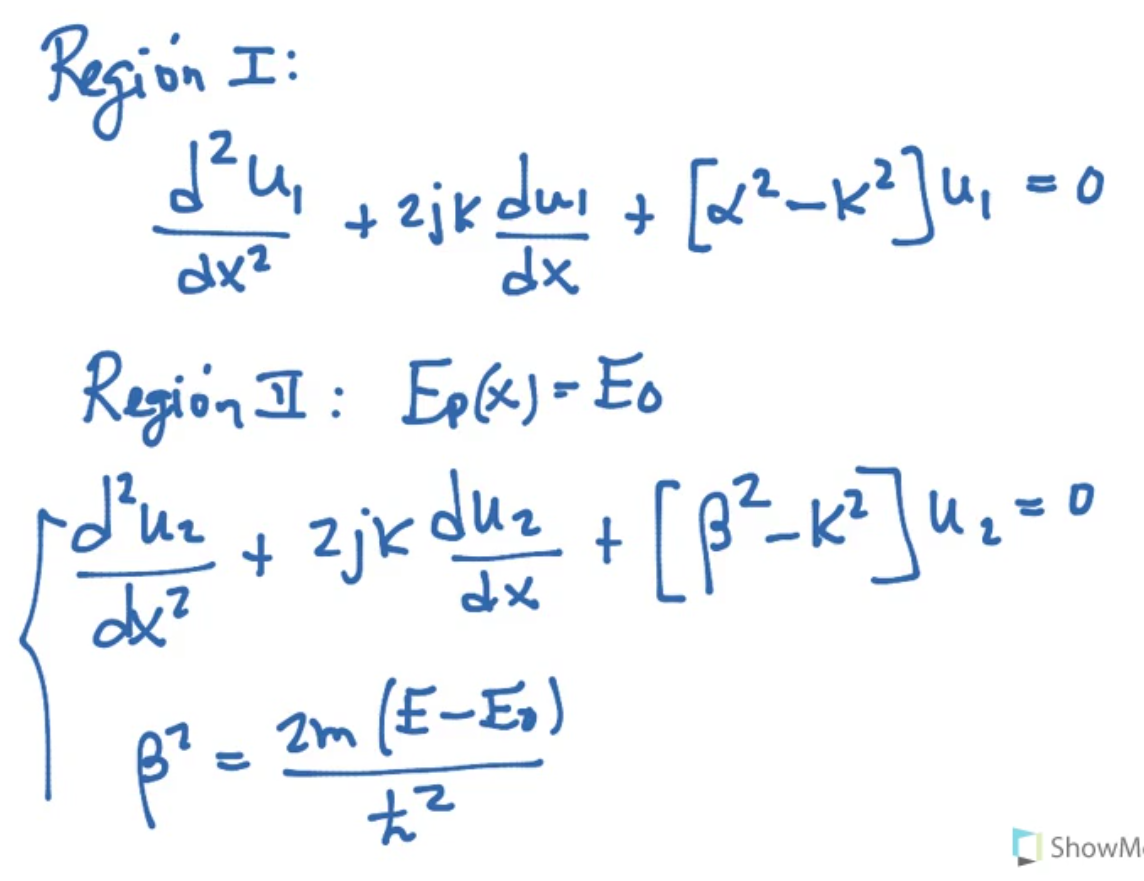 Región I:
d²u₁/dx² + 2jk du₁/dx + [α² – k²] u₁ = 0
Región II: Ep(x) = E₀
d²u₂/dx² + 2jk du₂/dx + [β² – k²] u₂ = 0
β² = 2m (E – E₀)/ħ²
ShowMe